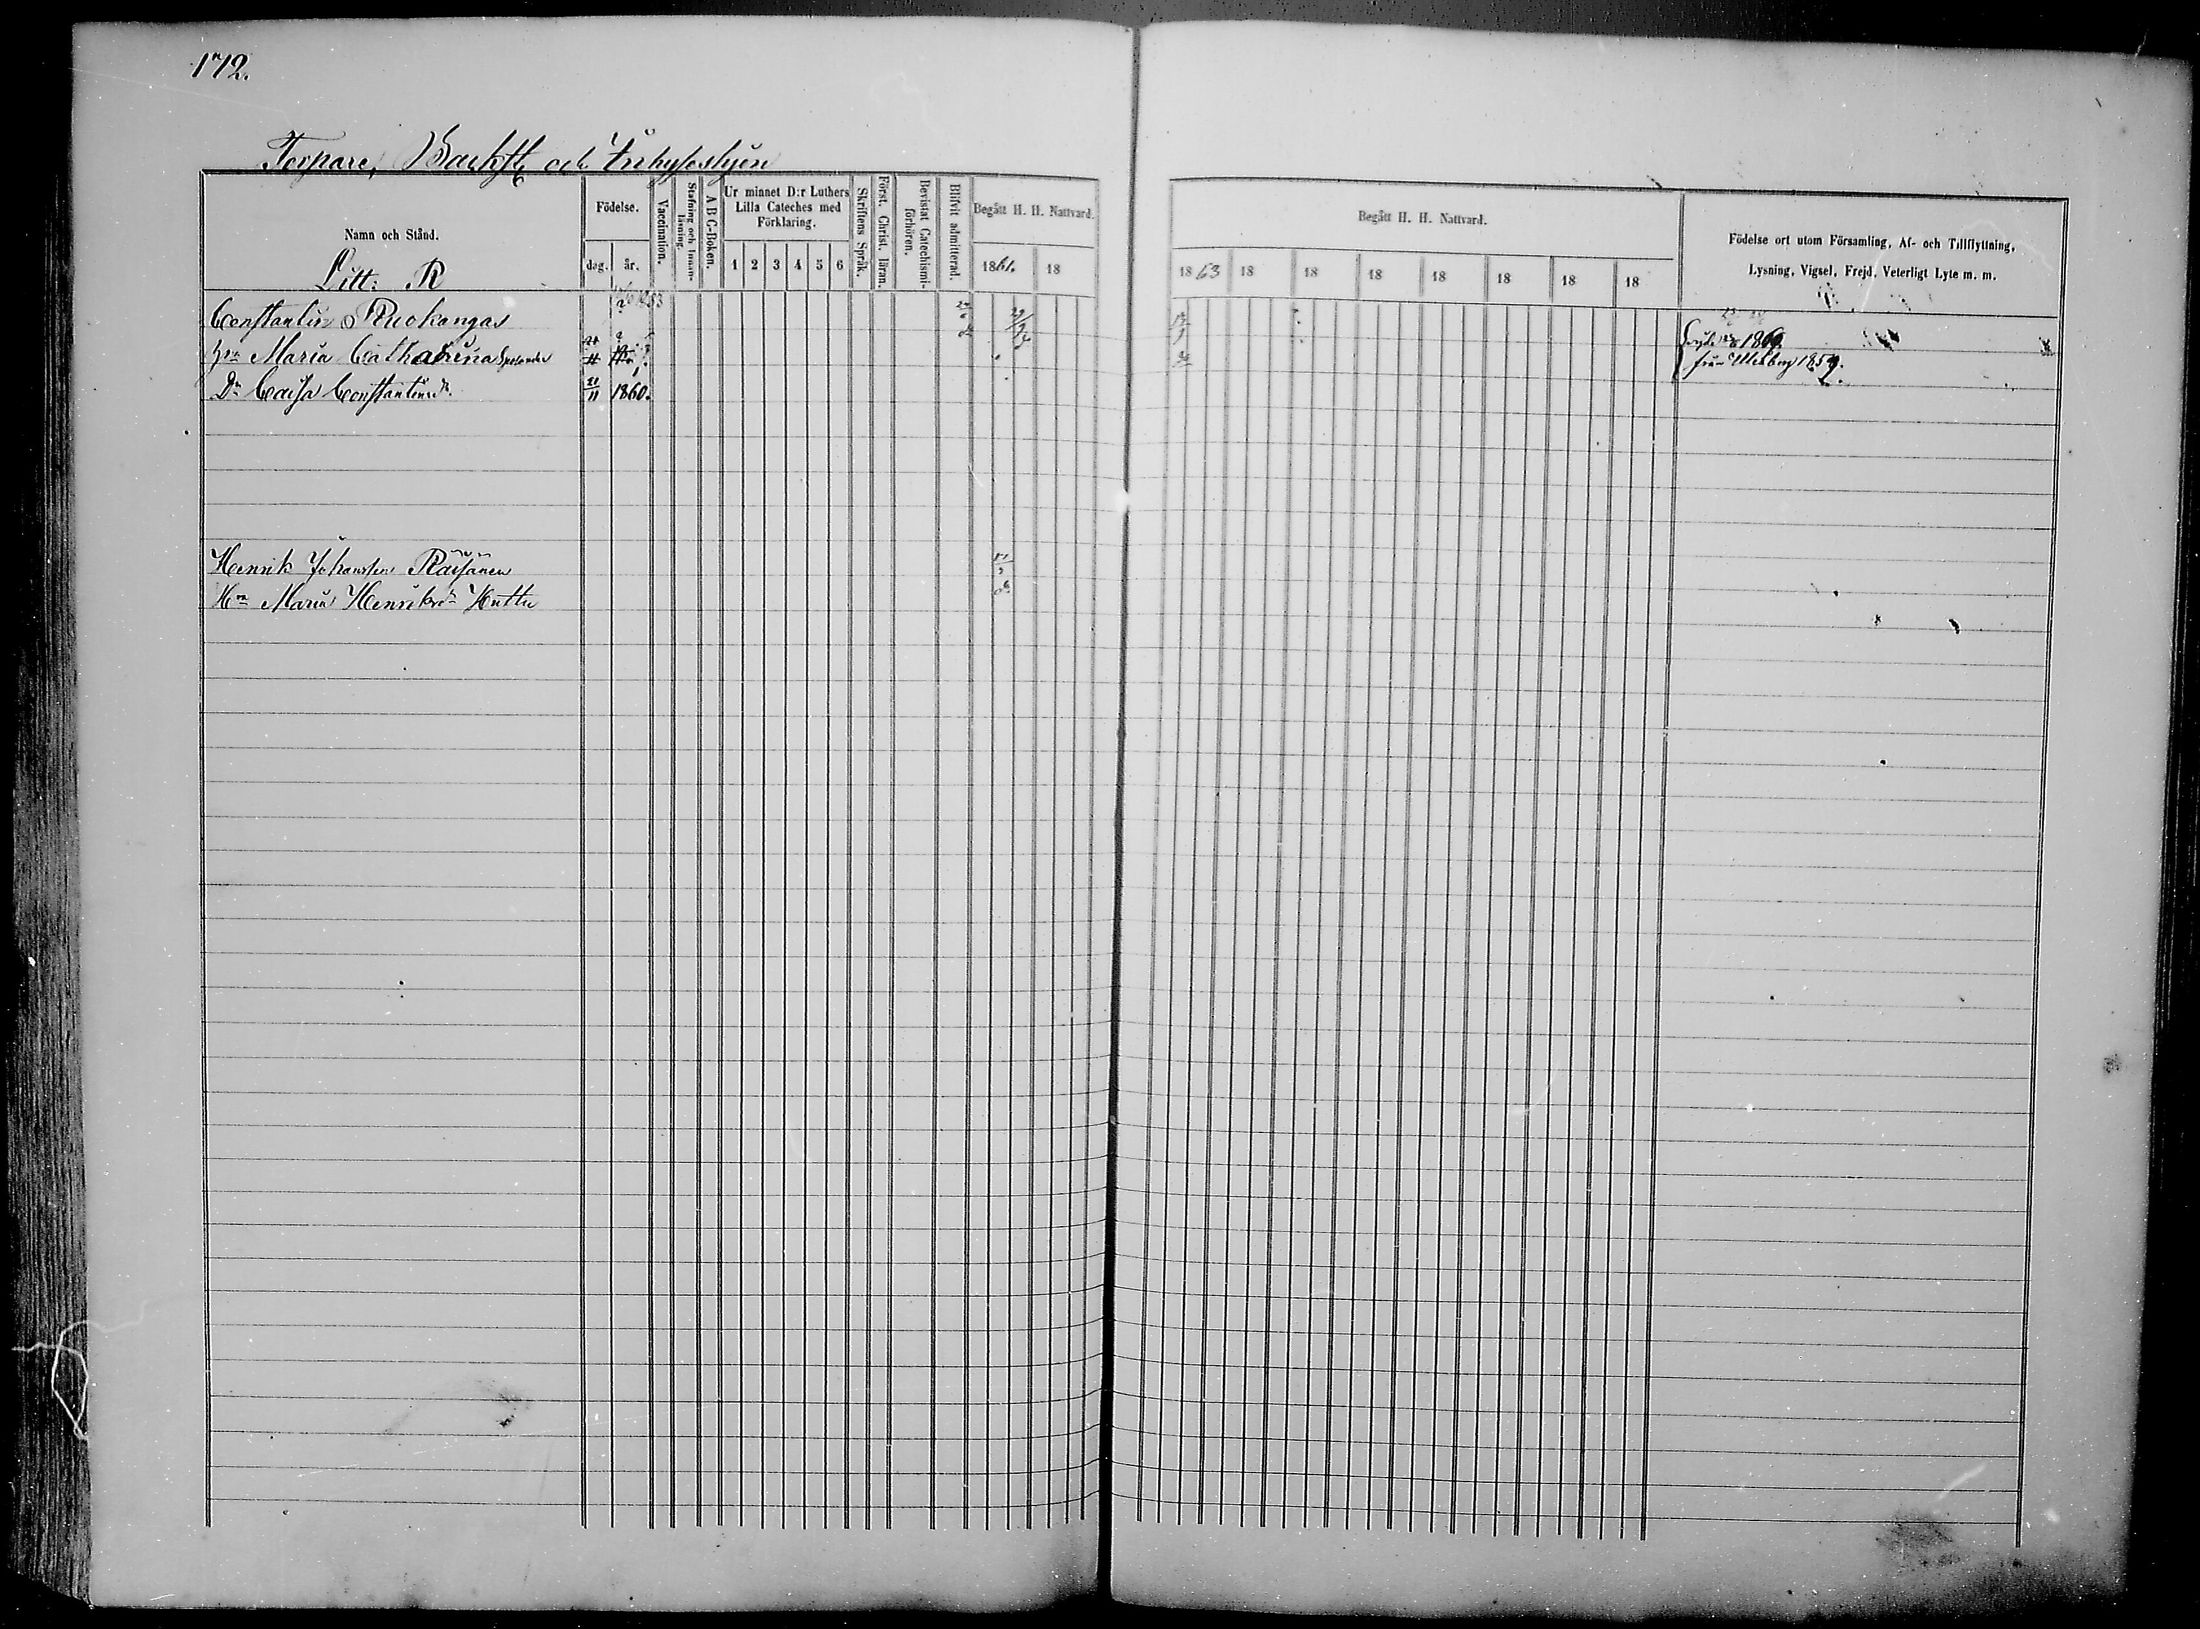 172.
Torpare, Backst. och Inhyseshjon
Namn och Stånd.
Litt: R
Födelse.
dag. år.
Vaccination.
Stafning och Innan-läsning.
A B C-Boken.
Ur minnet D:r Luthers Lilla Cateches med Förklaring.
1 2 3 4 5 6
Skriftens Språk.
Först. Christ. läran.
Bevistat Catechismi-förhören.
Blifvit admitterad.
Begått H. H. Nattvard.
1861. 18
Begått H. H. Nattvard.
1863 18 18 18 18 18 18 18
Födelse ort utom Församling, Af- och Tillflyttning,
Lysning, Vigsel, Frejd, Veterligt Lyte m. m.
Constantin Ruokangas
Maria Catharina
1860.
från Uleåborg 1859.
Dr Caisa Constantinsdr 21/11 1860.
Henrik Johansson Räisänen
Hu Maria Henriksdr Huttu